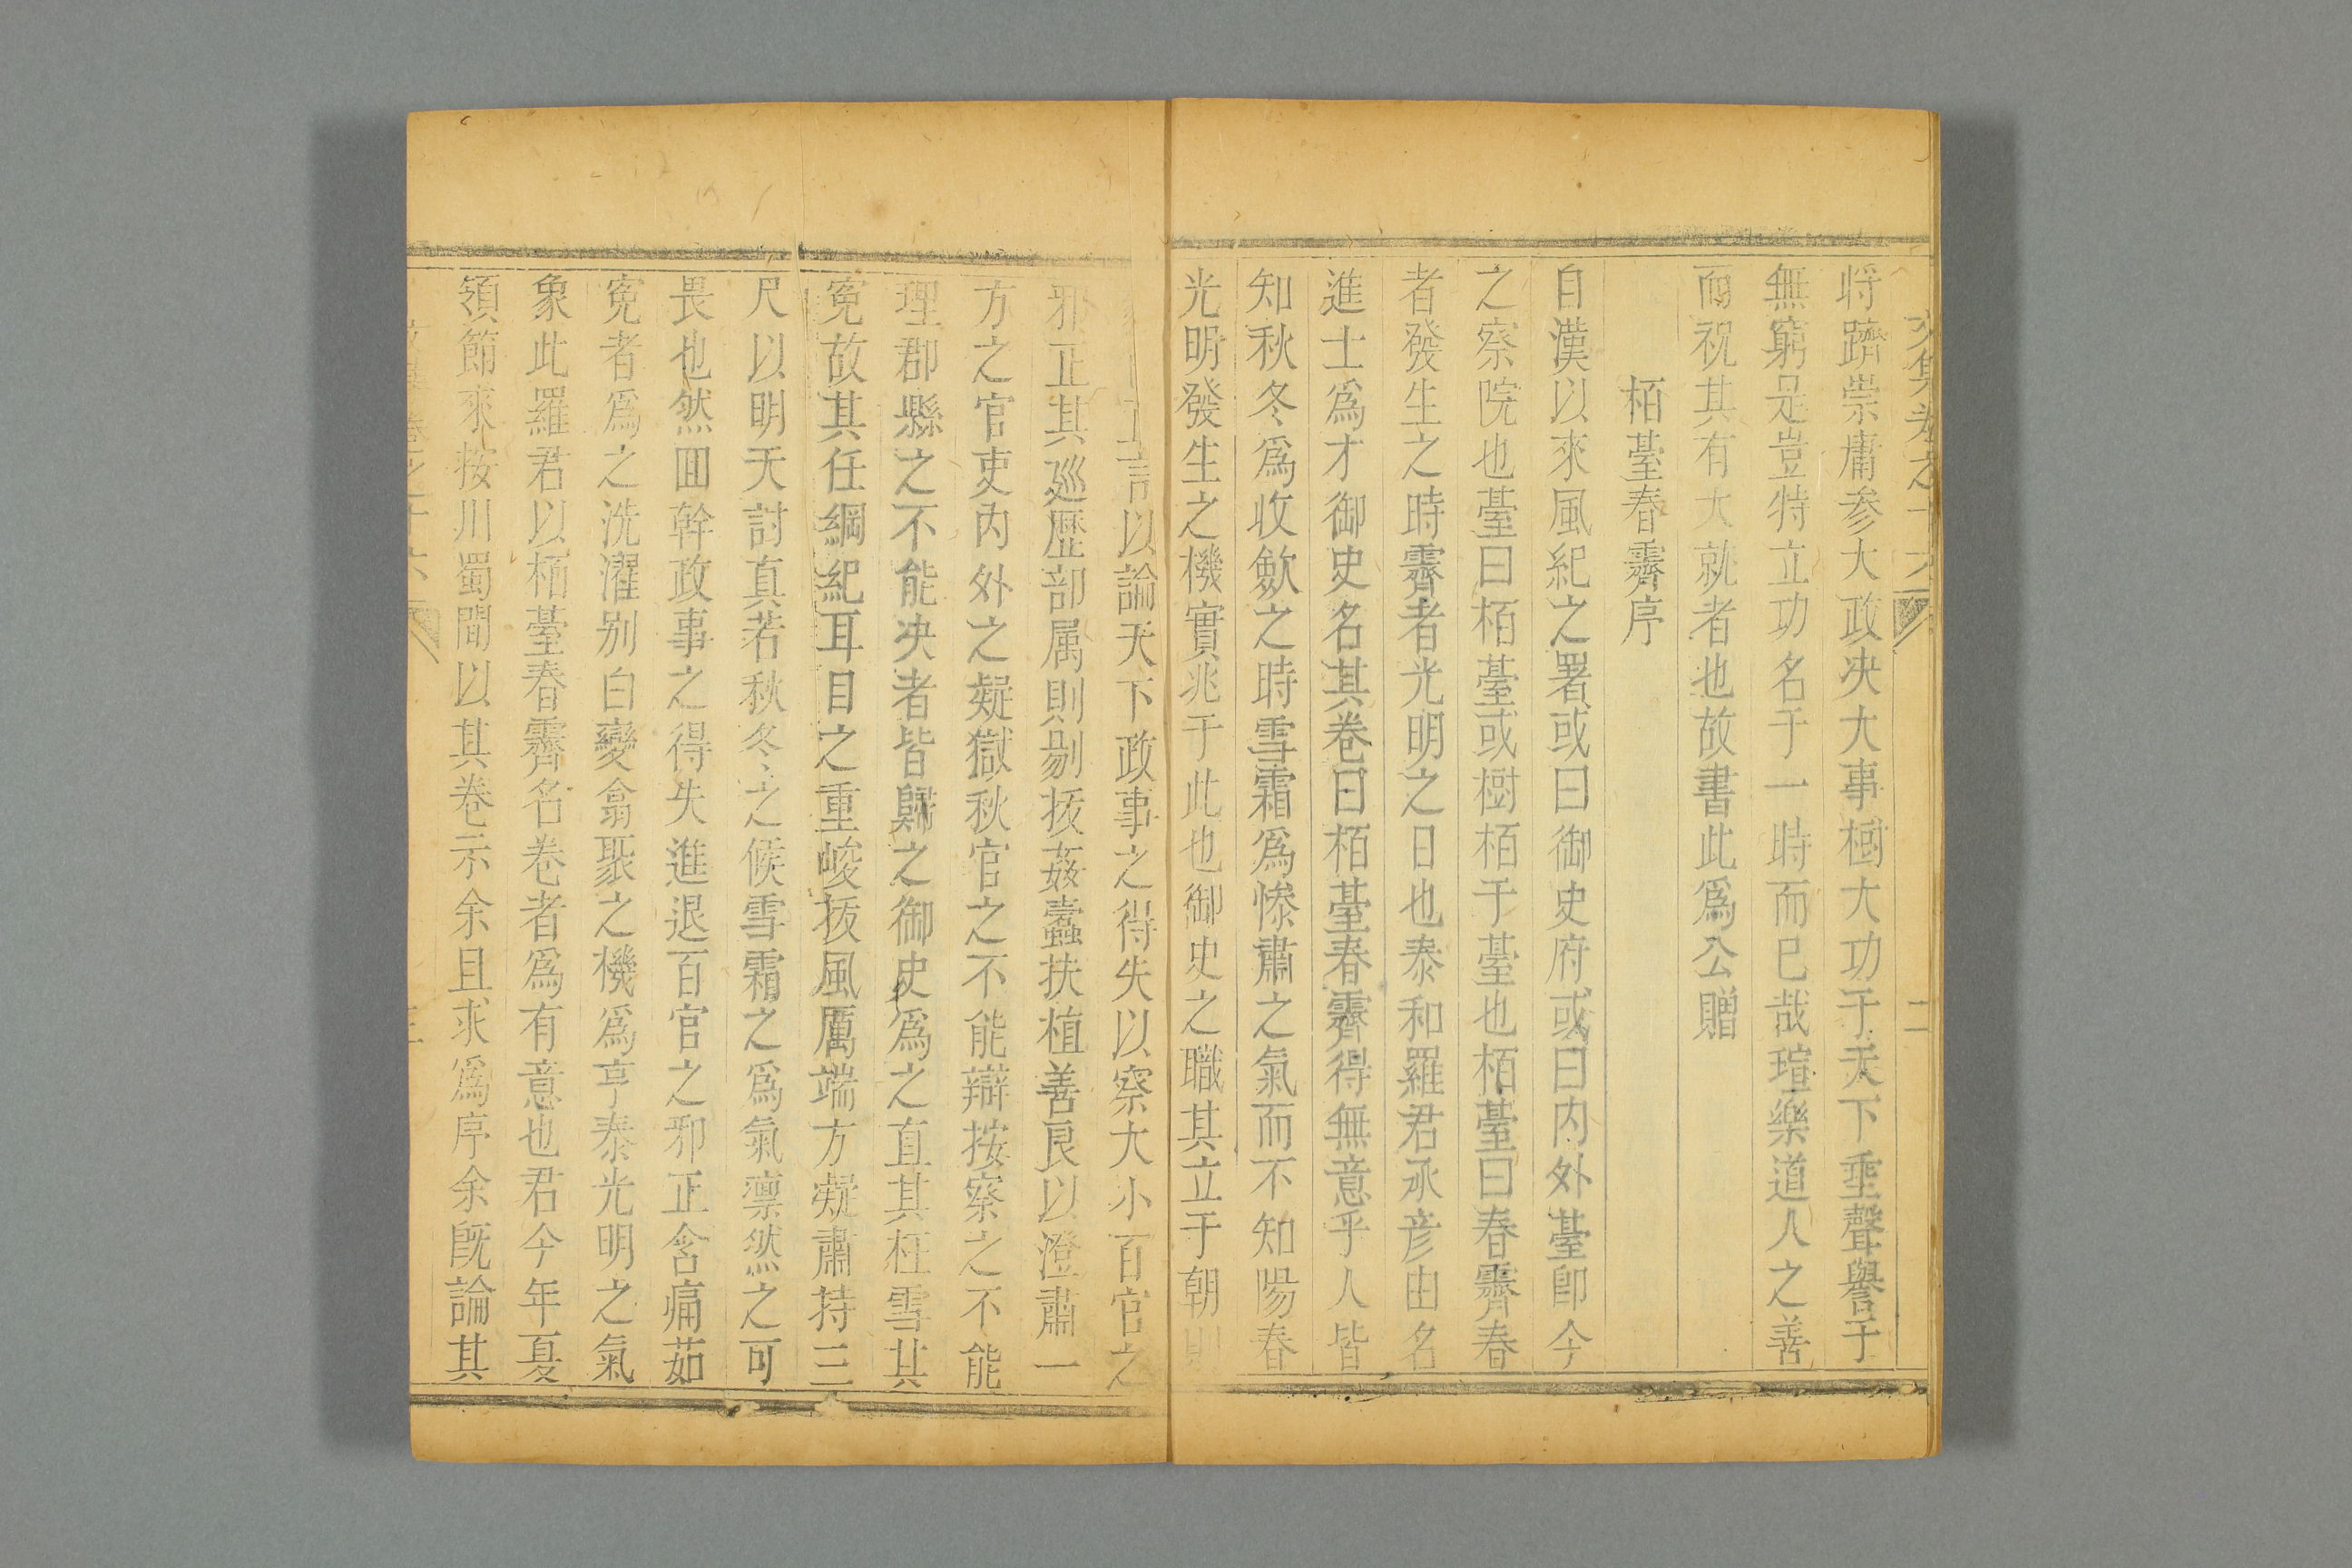 文集卷之十六
二
将躋崇庸参大政决大事樹大功于天下垂聲譽于
無窮是豈特立功名于一時而巳哉瑄樂道人之善
而祝其有大就者也故書此爲公贈
栢䑓春霽序
自漢以來風紀之署或曰御史府或曰内外䑓卽今
之察院也䑓曰栢䑓或樹栢于䑓也栢䑓曰春霽春
者發生之時霽者光明之日也泰和羅君承彦由名
進士爲才御史名其卷曰栢䑓春霽得無意乎人皆
知秋冬爲收歛之時雪霜爲慘肅之氣而不知陽春
光明發生之機實兆于此也御史之職其立于朝則
言以論天下政事之得失以察大小百官之
邪正其廵歷部属則剔抜姦蠹扶植善良以澄肅一
方之官吏内外之疑獄秋官之不能辯按察之不能
理郡縣之不能决者皆歸之御史爲之直其枉雪其
寃故其任綱紀耳目之重峻抜風厲端方凝肅持三
尺以明天討真若秋冬之候雪霜之爲氣凛然之可
畏也然回斡政事之得失進退百官之邪正含痛茹
寃者爲之洗濯别白變翕聚之機爲亨泰光明之氣
象此羅君以栢䑓春霽名卷者爲有意也君今年夏
領節來按川蜀間以其卷示余且求爲序余旣論其